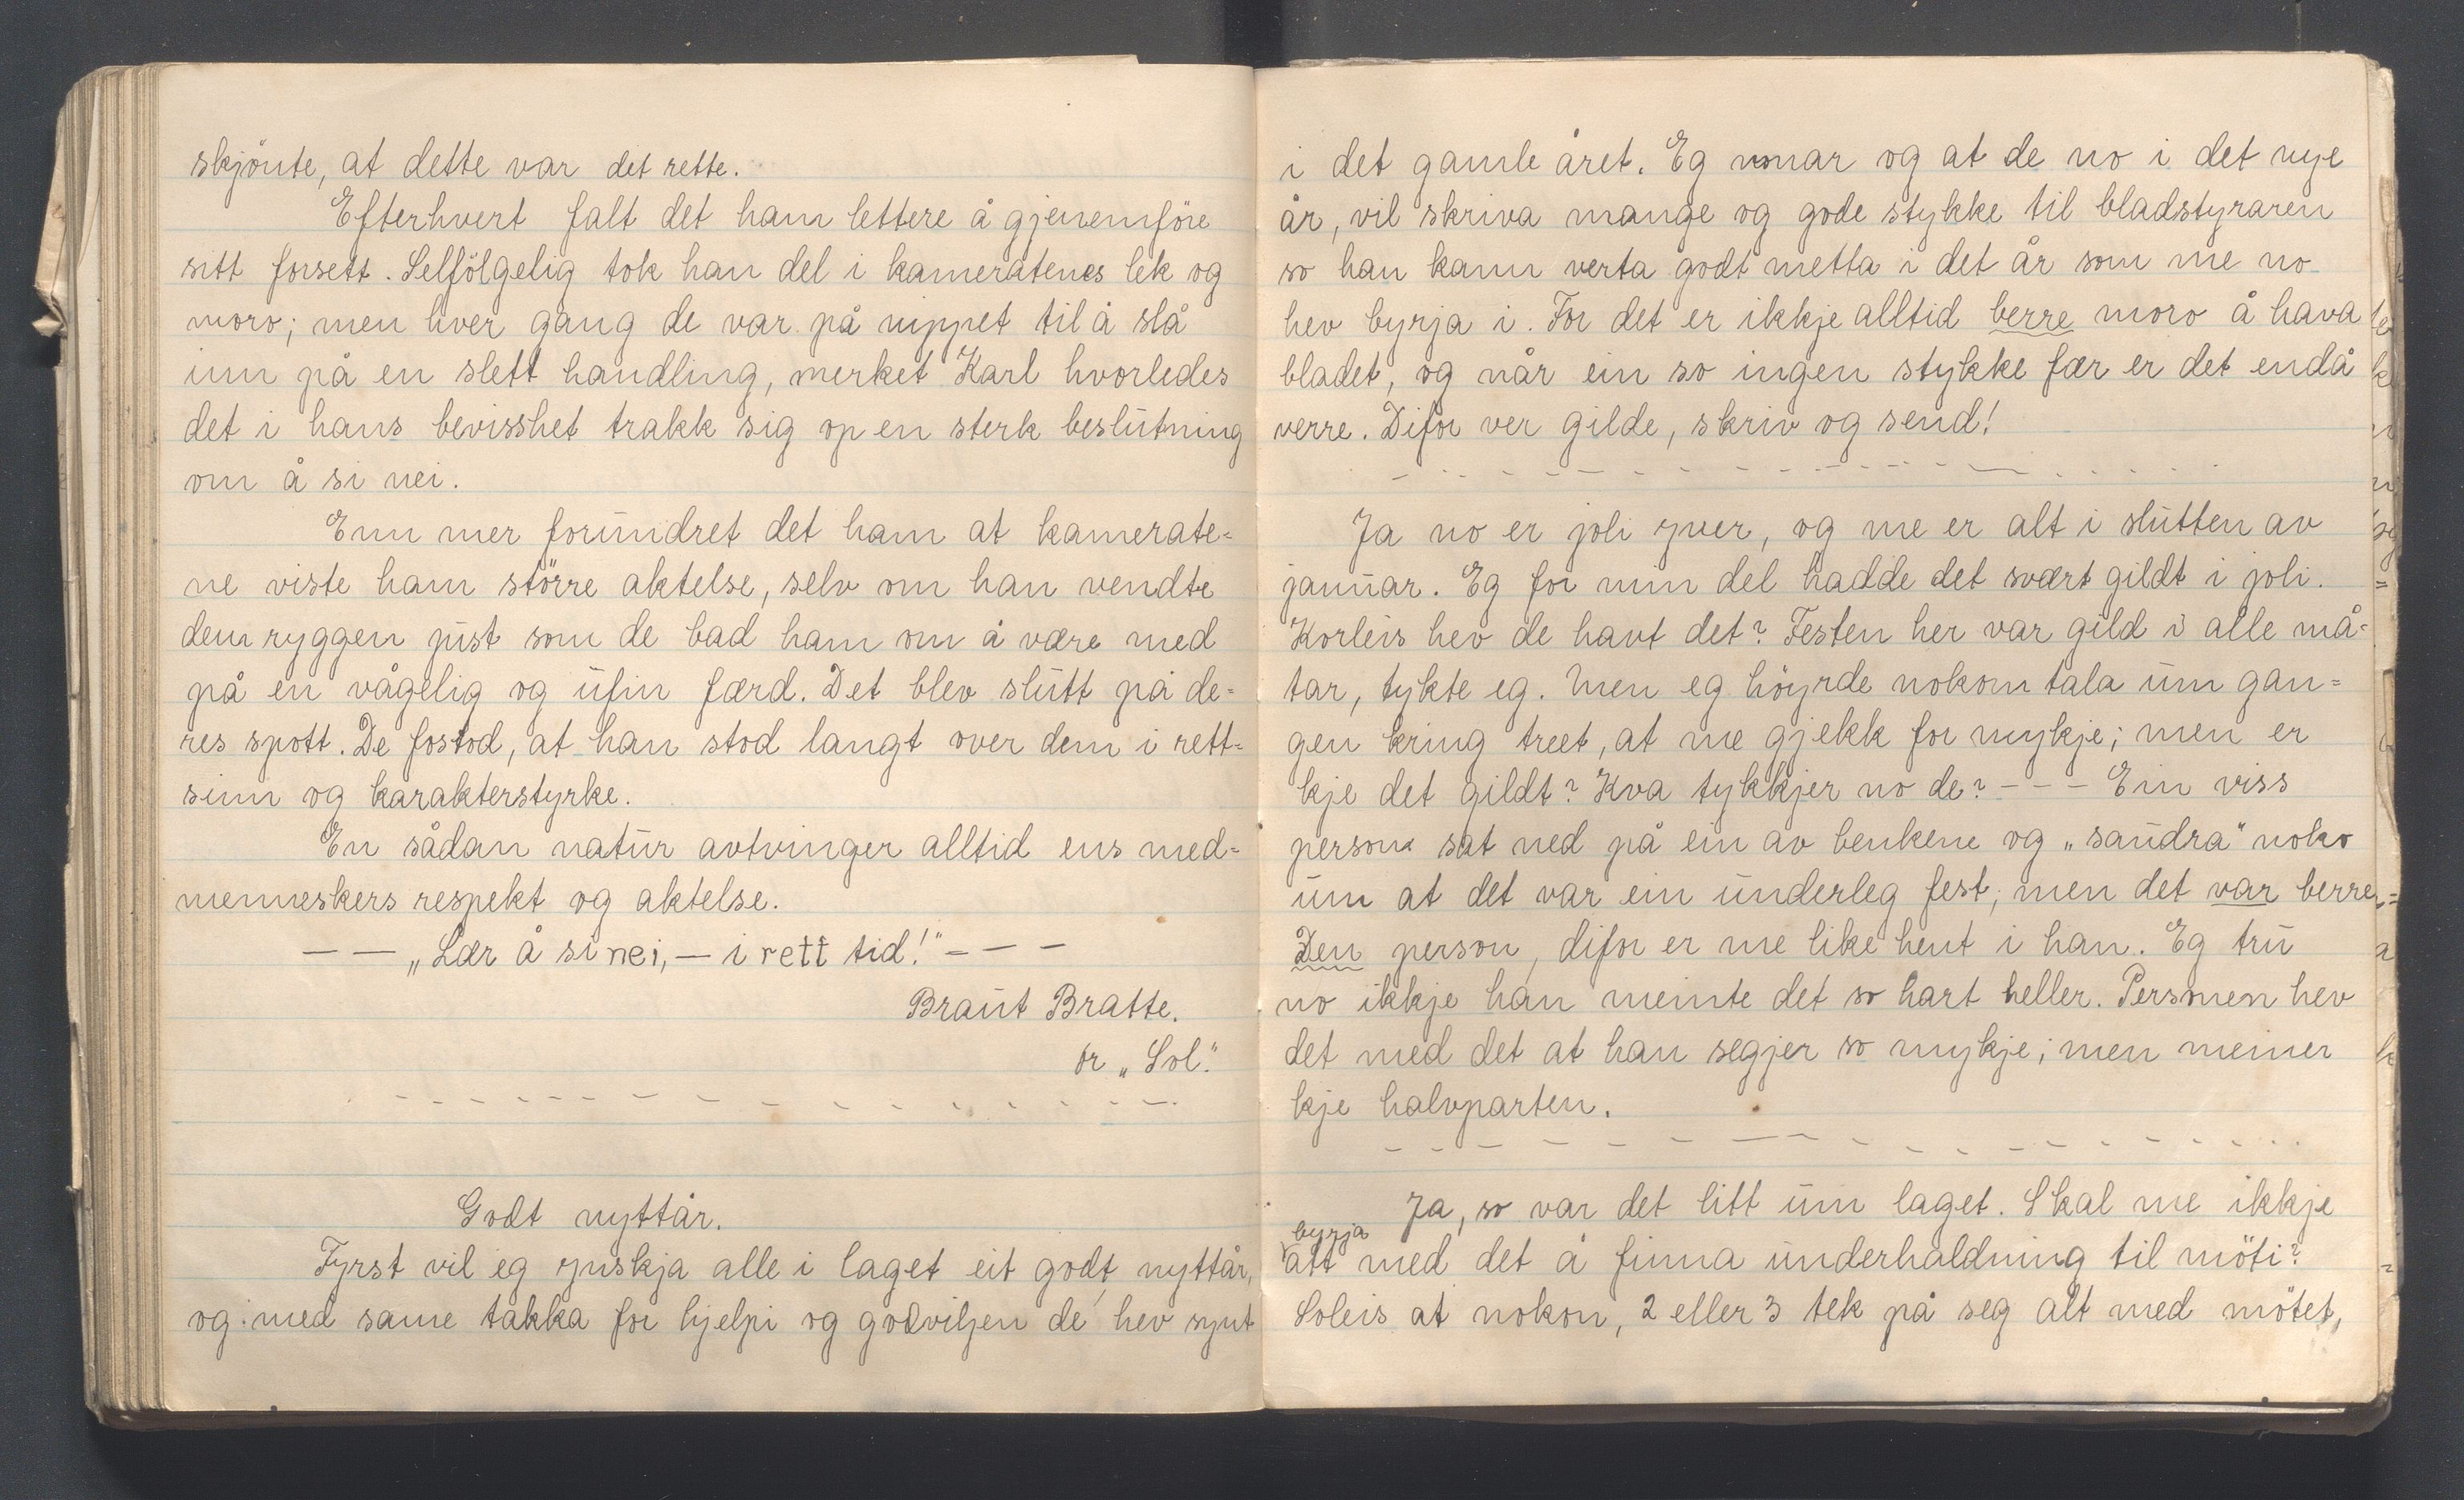 skjönte, at dette var det rette.
Efterhvert falt det ham lettere å gjenemföre
sitt forsett. Selfölgelig tok han del i kameratenes lek og
moro; men hver gang de var på nippet til å slå
inn på en slett handling, merket Karl hvorledes
det i hans bevissthet trakk sig op en sterk beslutning
om å si nei.
Enn mer forundret det ham at kamerate=
ne viste ham större aktelse, selv om han vendte
dem ryggen just som de bad ham om å være med
på en vågelig og ufin færd. Det blev slutt på de=
res spott. De fostod, at han stod langt over dem i rett=
sinn og karakterstyrke.
En sådan natur avtvinger alltid ens med=
menneskers respekt og aktelse.
— — „Lær å si nei, — i rett tid!" – – –
Braut Bratte.
or „Sol".
Godt nyttår.
Fyrst vil eg ynskja alle i laget eit godt nyttår,
og med same takka for hjelpi og godviljen de hev synt
i det gamle året. Eg vonar og at de no i det nye
år, vil skriva mange og gode stykke til bladstyraren
so han kann verta godt metta i det år som me no
hev byrja i. For det er ikkje alltid berre moro å hava
bladet, og når ein so ingen stykke fær er det endå
verre. Difor ver gilde, skriv og send!
Ja no er joli yver, og me er alt i slutten av
januar. Eg for min del hadde det svært gildt i joli.
Korleis hev de havt det? Festen her var gild i alle må=
tar, tykte eg. Men eg höyrde nokom tala um gan=
gen kring treet, at me gjekk for mykje; men er
kje det gildt? Kva tykkjer no de? – – – Ein viss
person sat ned på ein av benkene og „saudra" noko
um at det var ein underleg fest; men det var berre
Den person, difor er me like hent i han. Eg tru
no ikkje han meinte det so hart heller. Personen hev
det med det at han segjer so mykje; men meiner
kje halvparten.
Ja, so var det litt um laget. Skal me ikkje
byrja
att med det å finna underhaldning til möti?
Soleis at nokon, 2 eller 3 tek på seg alt med mötet,